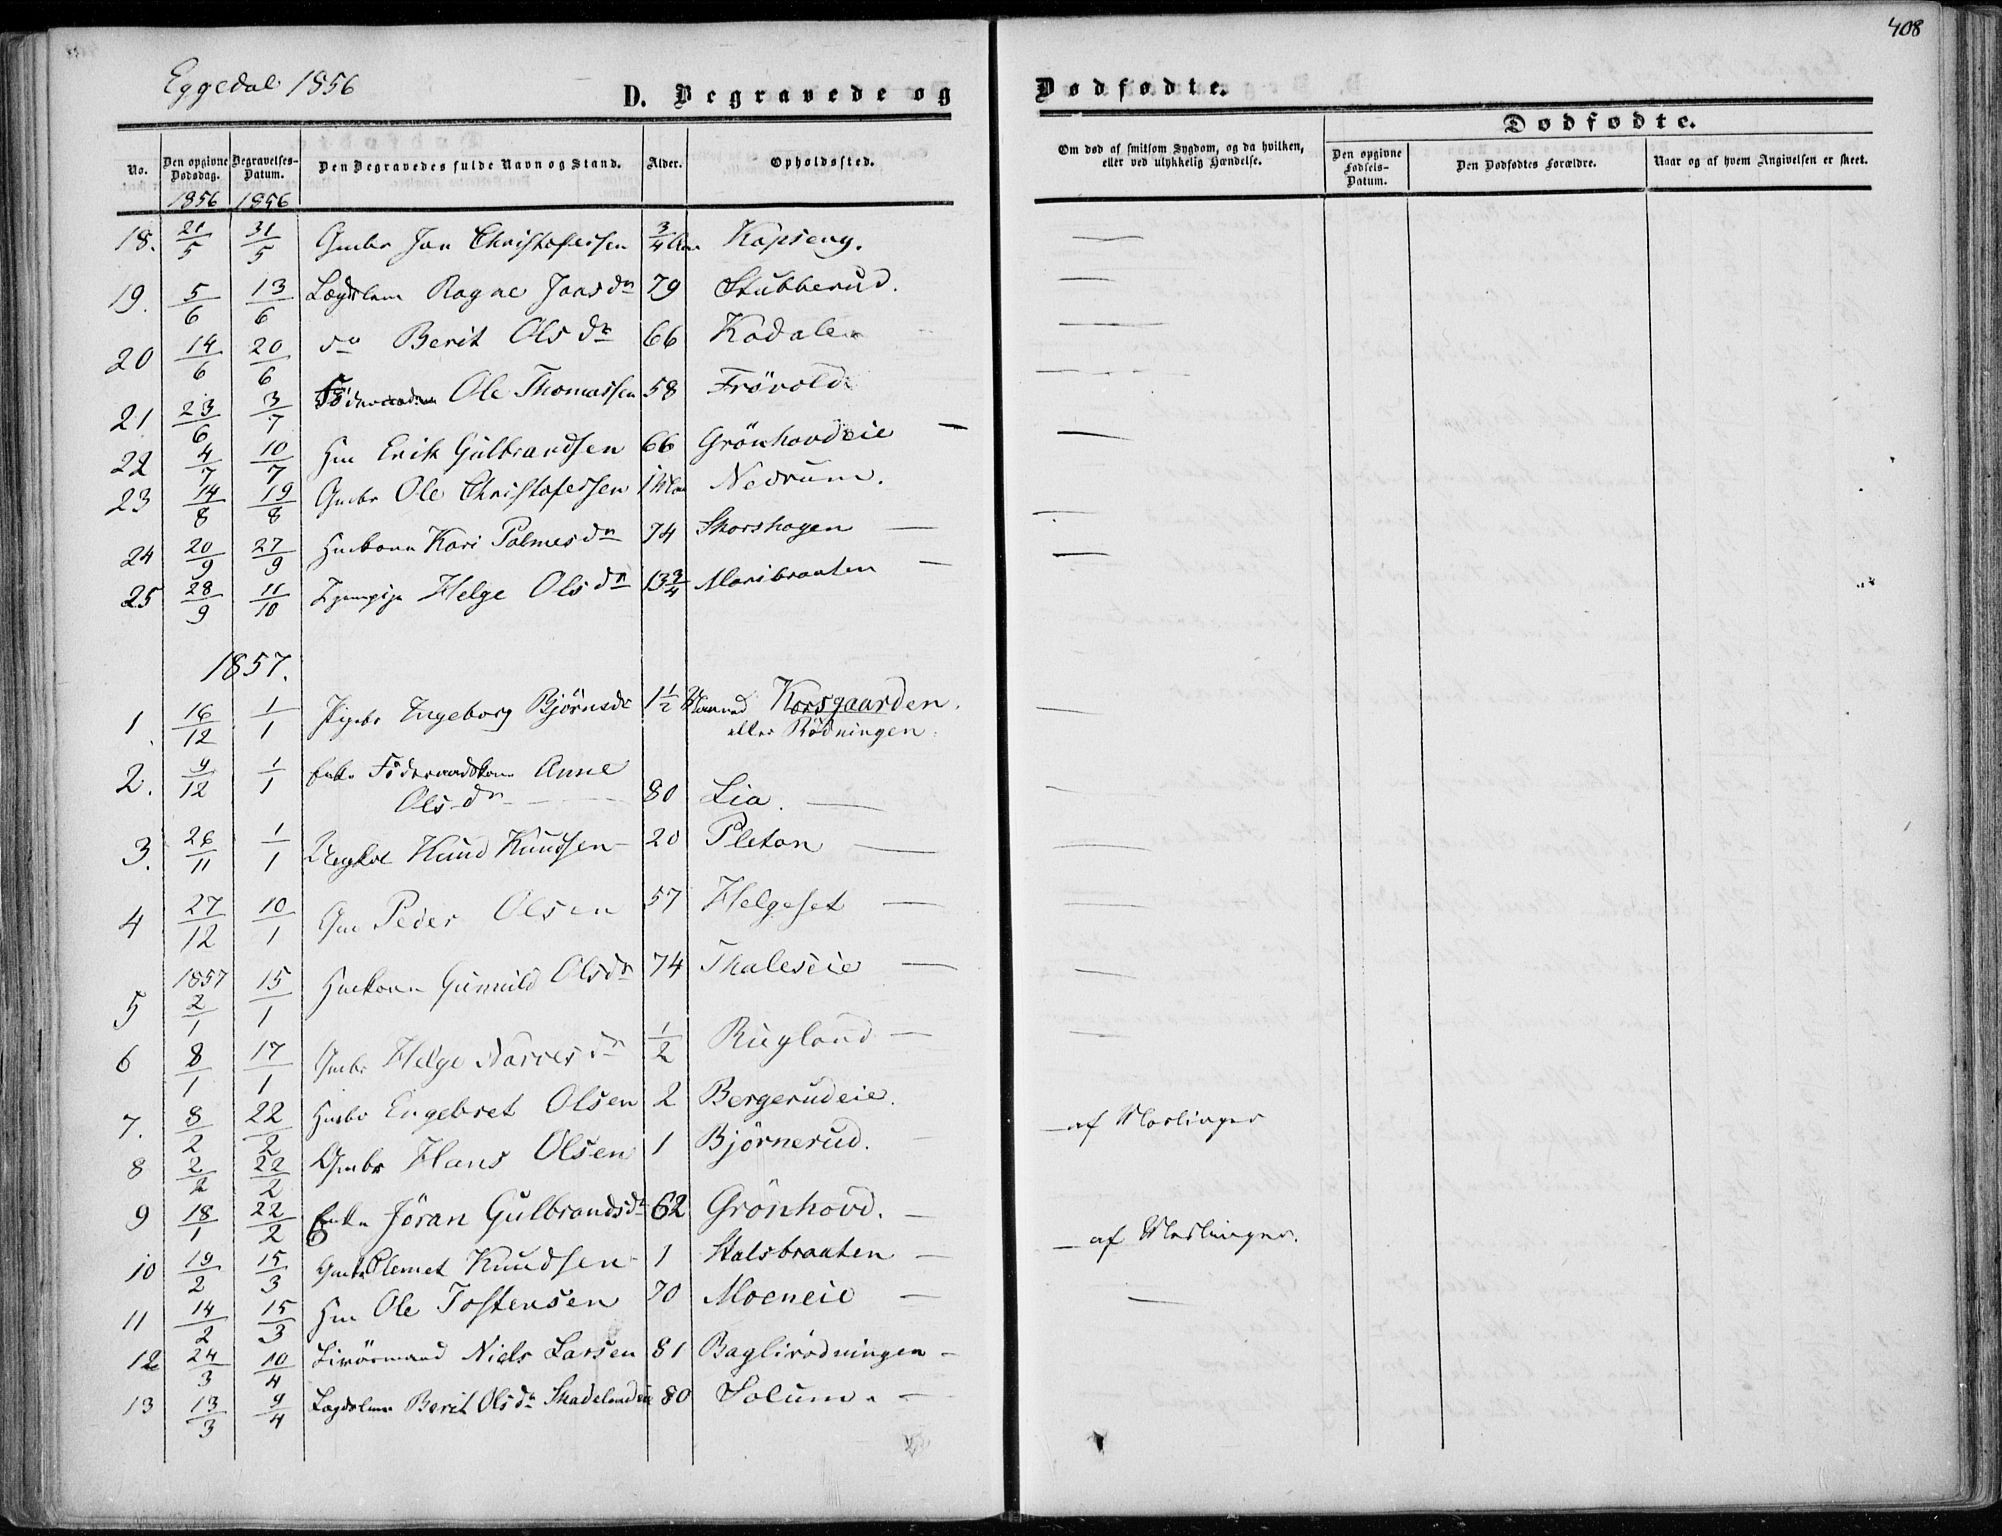 408
Eggedal 1856
D. Begravede og Dødfødte.
Dødfødte.
No. Den opgivne Dødsdag. Begravelses-Datum. Den Begravedes fulde Navn og Stand. Alder. Opholdssted. Om død af smitsom Sygdom, og da hvilken, eller ved ulykkelig Hændelse. Den opgivne Fødsels-Datum. Den Dødfødtes Forældre. Naar og af hvem Angivelsen er skeet.
1856 1856
18. 21/5 31/5 Gmbr Jon Christofersen 3/4 Kopseng.
19. 5/6 13/6 Lægdslem Ragne Jonsdr 79 Stubberud.
20 14/6 20/6 do Berit Olsdr 66 Kadalen
21 23/6 3/7 Ole Thomassen 58 Frövold
22 4/7 10/7 Hm Erik Gulbrandsen 66 Grönhovdeie —
23 14/8 19/8 Gmbr Ole Christofersen 1 Nedrum.
24 20/9 27/9 Hmkone Kari Palmesdr 74 Skorshagen —
25 28/9 11/10 Helge Olsdr 13 3/4 Moribraaten —
1857.
1. 16/12 1/1 Pigebr Ingeborg Björnsdr 1 1/2 Korsgaarden.
eller Rödningen.
2. 9/12 1/1 Enke Föderaadskone Anne
Olsdr 80 Lia. —
3. 26/11 1/1 Ungkol Knud Knudsen 20 Pleton —
4 27/12 10/1 Gm Peder Olsen 57 Helgeset —
1857
5 2/1 15/1 Hmkone Gunnild Olsdr 74 Thaleseie —
6 8/1 17/1 Gmbr Helge Narvesdr 1/2 Rugland —
7. 8/2 22/2 Hmbr Engebret Olsen 2 Bergerudeie. — af Meslinger
8 2/2 22/2 Gmbr Hans Olsen 1 Björnerud. —
9 18/1 22/2 Enke Jöran Gulbrandsdr 62 Grönhovd. —
10 19/2 15/3 Gmbr Clemet Knudsen 1 Stalsbraaten — — af Meslinger.
11 14/2 15/3 Hm Ole Tostensen 70 Moeneie —
12 24/3 10/4 Livörmand Niels Larsen 81 Baglirödningen —
13 13/3 9/4 Lægdslem Berit Olsdr Skadelandeie 80 Solum. —